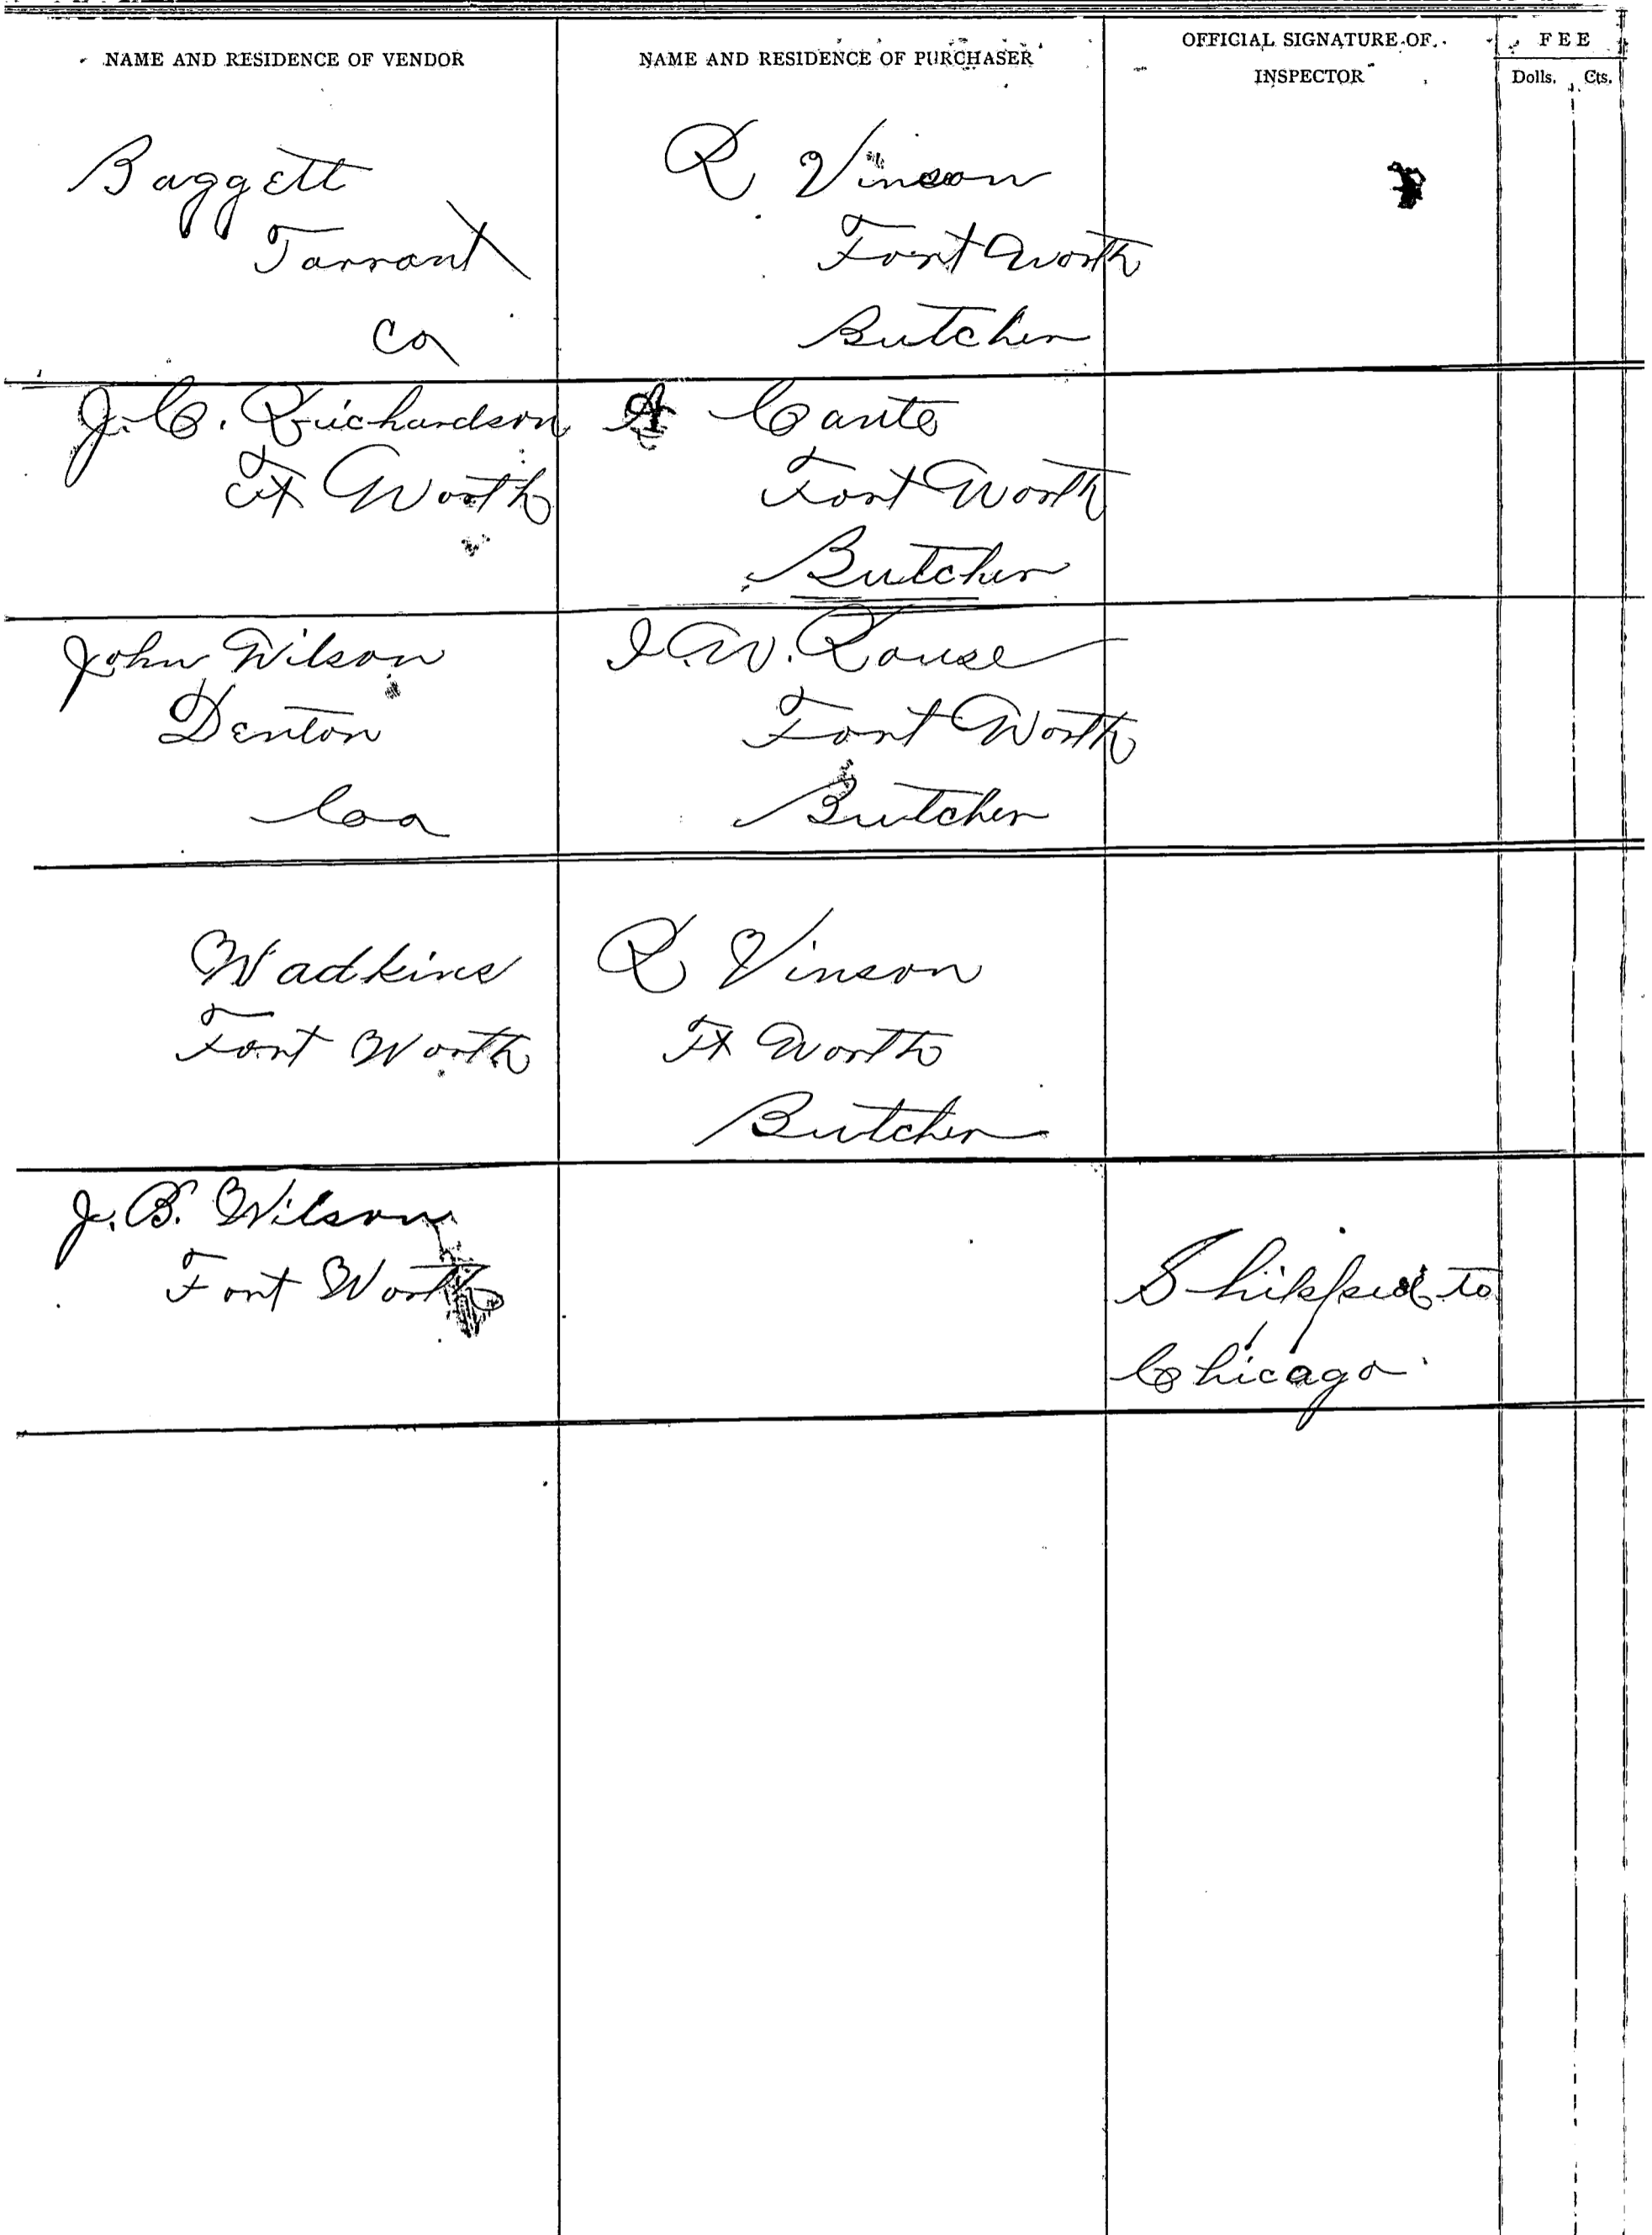 NAME AND RESIDENCE OF VENDOR
NAME AND RESIDENCE OF PURCHASER
OFFICIAL SIGNATURE OF
INSPECTOR
FEE
Dolls. Cts.
Baggett
Tarrant
Co
R Vinson
Fort Worth
Butcher
J. C. Richardson
Ft Worth
A Cante
Fort Worth
Butcher
John Wilson
Denton
Co
I. W. Rouse
Fort Worth
Butcher
Wadkins
Fort Worth
R Vinson
Ft Worth
Butcher
J. B. Wilson
Fort Worth
Shipped to
Chicago